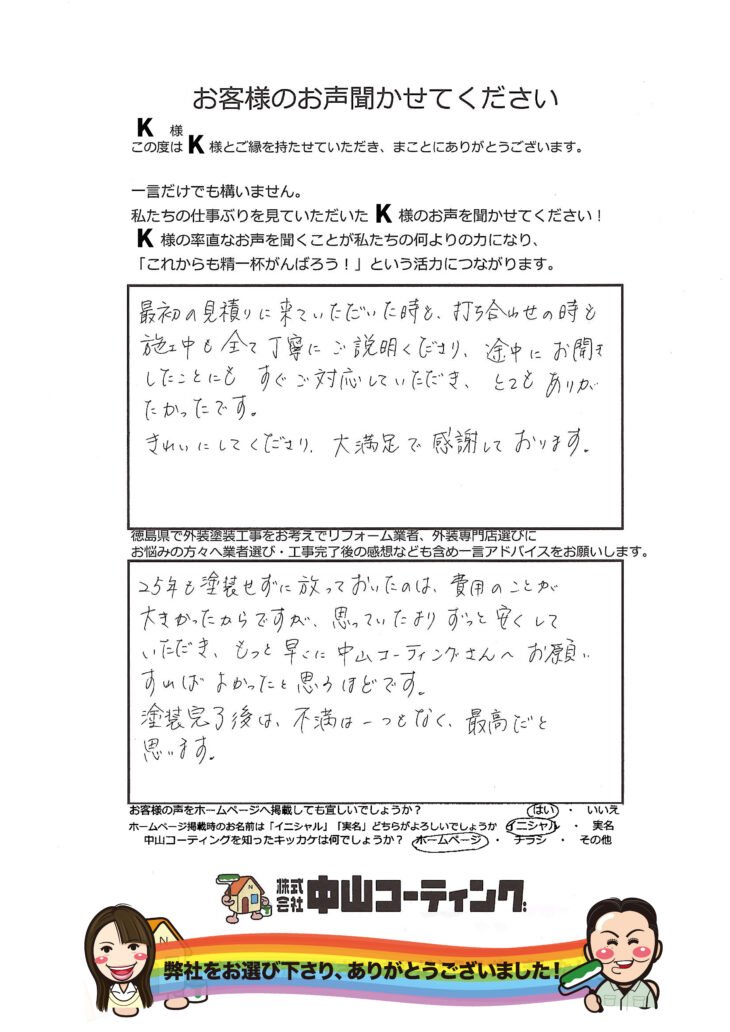 お客様のお声聞かせてください
K 様
この度は K 様とご縁を持たせていただき、まことにありがとうございます。
一言だけでも構いません。
私たちの仕事ぶりを見ていただいた K 様のお声を聞かせてください！
K 様の率直なお声を聞くことが私たちの何よりの力になり、
「これからも精一杯がんばろう！」という活力につながります。
最初の見積りに来ていただいた時も、打ち合わせの時も
施工中も全て丁寧にご説明くださり、途中にお聞き
したことにも すぐご対応していただき、とてもありが
たかったです。
きれいにしてくださり、大満足で感謝しております。
徳島県で外装塗装工事をお考えでリフォーム業者、外装専門店選びに
お悩みの方々へ業者選び・工事完了後の感想なども含め一言アドバイスをお願いします。
25年も塗装せずに放っておいたのは、費用のことが
大きかったからですが、思っていたよりずっと安くして
いただき、もっと早くに中山コーティングさんへお願い
すればよかったと思うほどです。
塗装完了後は、不満は一つもなく、最高だと
思います。
お客様の声をホームページへ掲載しても宜しいでしょうか？ はい ・ いいえ
ホームページ掲載時のお名前は「イニシャル」「実名」どちらがよろしいでしょうか イニシャル ・ 実名
中山コーティングを知ったキッカケは何でしょうか？ ホームページ ・ チラシ ・ その他
株式会社 中山コーティング
弊社をお選び下さり、ありがとうございました！